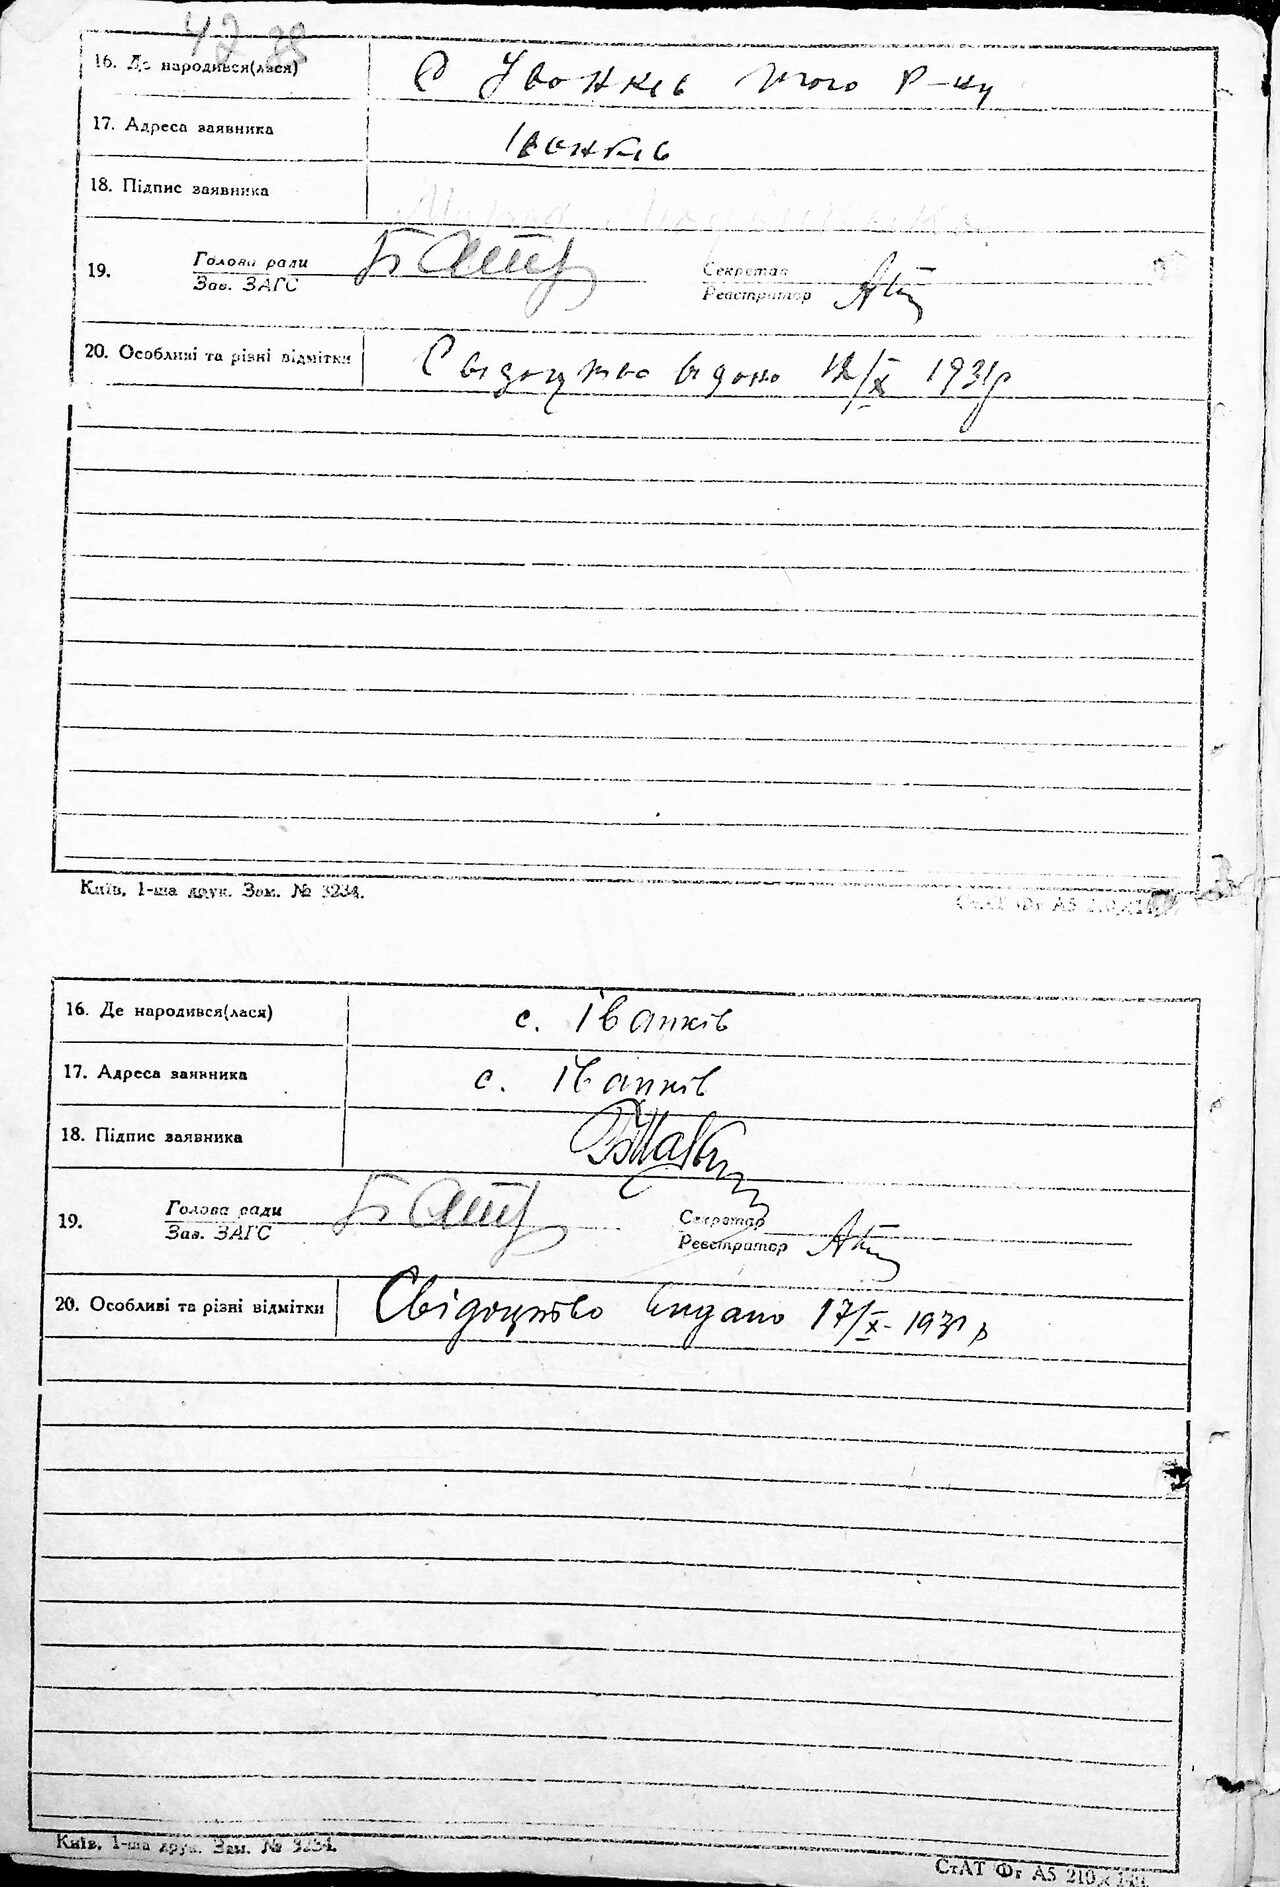 42 38
16. Де народився(лася) с Іванків того р-ну
17. Адреса заявника Іванків
18. Підпис заявника
19. Голова ради
Зав. ЗАГС
Секретар
Реєстратор
20. Особливі та різні відмітки Свідоцтво видано 12/X 1931р
Київ, 1-ша друк. Зам. № 3234.
СтАТ Фг А5
16. Де народився(лася) с. Іванків
17. Адреса заявника с. Іванків
18. Підпис заявника
19. Голова ради
Зав. ЗАГС
Секретар
Реєстратор
20. Особливі та різні відмітки Свідоцтво видано 17/X - 1931 р
Київ, 1-ша друк. Зам. № 3234.
СтАТ Фг А5 210 x